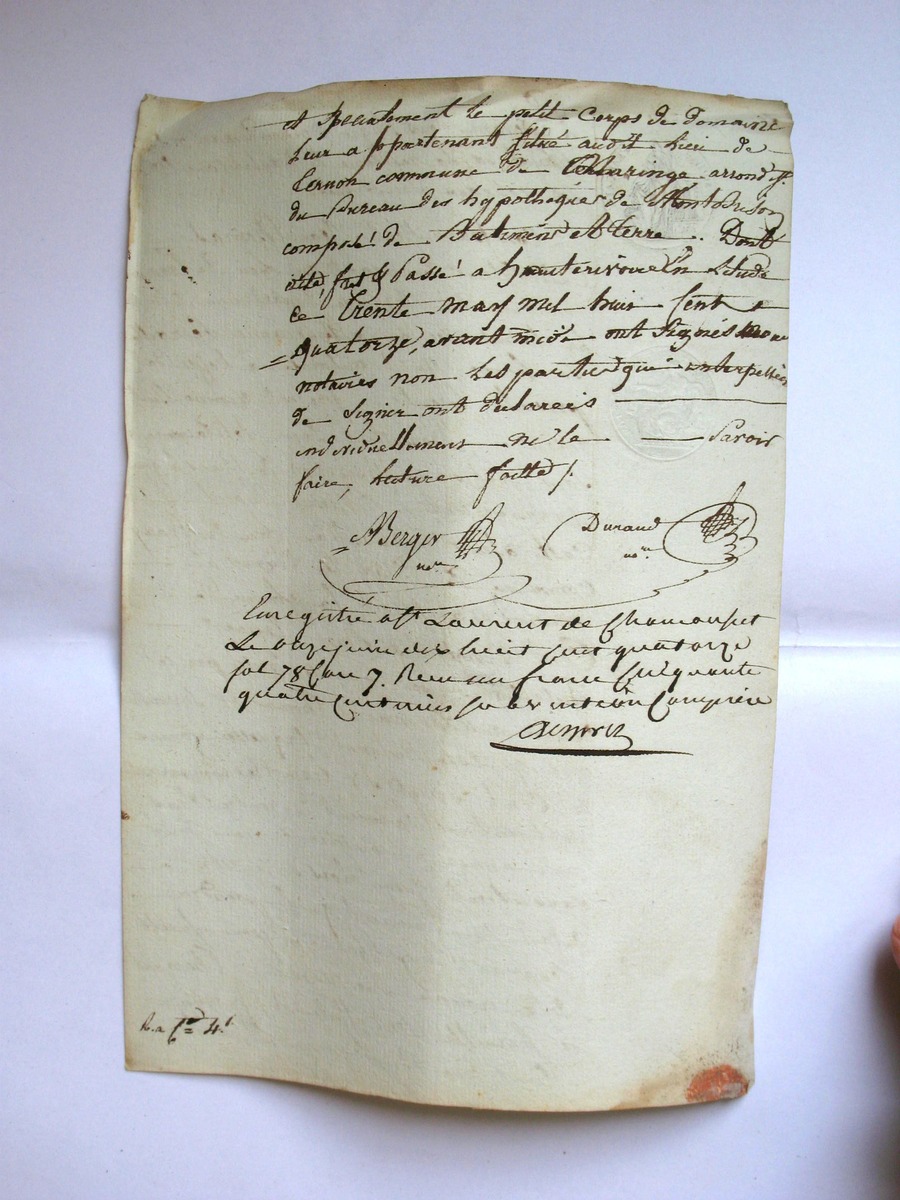 et specialement le petit corps de domaine
leur appartenant situé audit lieu de
commune de arrond.t
du Bureau des hypothèques de Montbrison
composé de Batimens et terre. Dont
acte, fait & Passé a hauterivoire En Letude
ce trente mars mil huit Cent
quatorze, avant midi ont signés nous
notaires non les parties qui interpellées
de signer ont declarées
individuellement ne le savoir
faire, lecture faitte /.
ABerger Durand
no.re no.re
Enregistré a St Laurent de Chamousset
Le onze juin dix huit cent quatorze
fol 78 Case 7. Recu un franc Cinquante
quatre centimes subvention Comprise